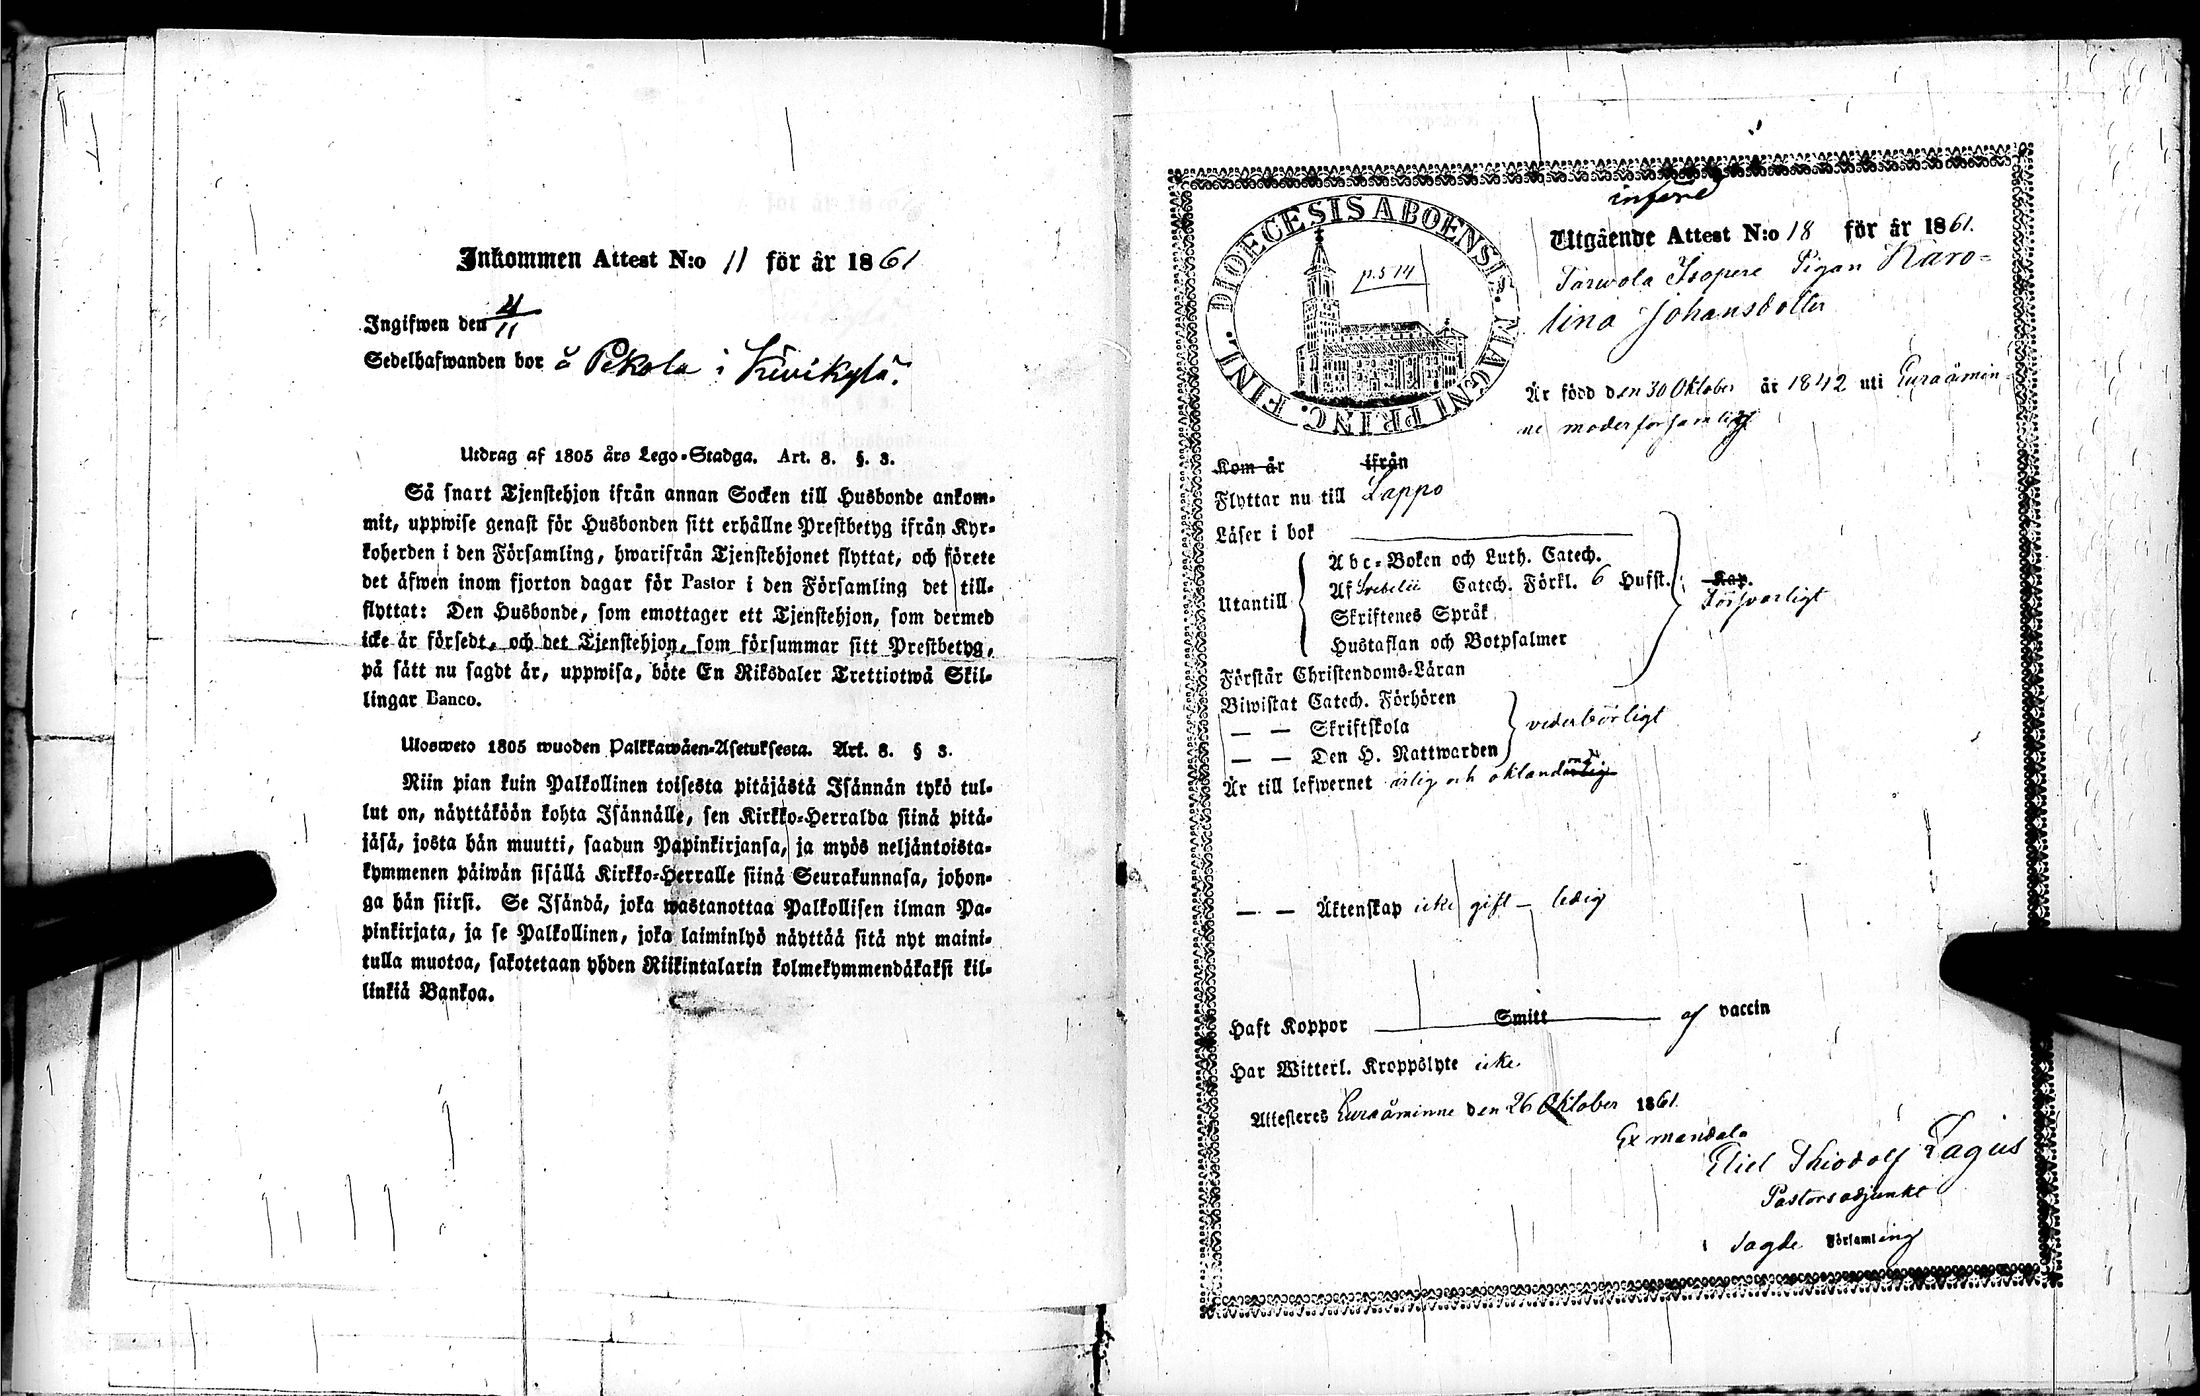 Inkommen Attest N:o 11 för år 1861
Ingifwen den 4/11
Sedelhafwanden bor å Pekola i Kivikylä.
Utdrag af 1805 års Lego-Stadga. Art. 8. §. 3.
Så snart Tjenstehjon ifrån annan Socken till Husbonde ankom-
mit, uppwise genast för Husbonden sitt erhållne Prestbetyg ifrån Kyr-
koherden i den Församling, hwarifrån Tjenstehjonet flyttat, och förete
det äfwen inom fjorton dagar för Pastor i den Församling det till-
flyttat: Den Husbonde, som emottager ett Tjenstehjon, som dermed
icke är försedt, och det Tjenstehjon, som försummar sitt Prestbetyg,
på sätt nu sagdt är, uppwisa, böte En Riksdaler Trettiotwå Skil-
lingar Banco.
Ulosweto 1805 wuoden Palkkawäen-Asetuksesta. Art. 8. § 3.
Niin pian kuin Palkollinen toisesta pitäjästä Isännän tykö tul-
lut on, näyttäköön kohta Isännälle, sen Kirkko-Herralda siinä pitä-
jäsä, josta hän muutti, saadun Papinkirjansa, ja myös neljäntoista-
kymmenen päiwän sisällä Kirkko-Herralle siinä Seurakunnasa, johon-
ga hän siirsi. Se Isändä, joka wastanottaa Palkollisen ilman Pa-
pinkirjata, ja se Palkollinen, joka laiminlyö näyttää sitä nyt maini-
tulla muotoa, sakotetaan yhden Riikintalarin kolmekymmendäkaksi kil-
linkiä Bankoa.
DIOECESIS ABOENSIS. MAGNI PRINC. FINL.
p. 514
införd
Utgående Attest N:o 18 för år 1861.
Tarvola Isopere Pigan Karo-
lina Johansdotter
Är född den 30 Oktober år 1842 uti Euraåmin-
ne moderförsamling
Kom år ifrån
Flyttar nu till Lappo
Läser i bok
Utantill
Abc-Boken och Luth. Catech.
Af Svebelii Catech. Förkl. 6 Hufst.
Skriftenes Språk
Hustaflan och Botpsalmer
Kap.
Försvarligt
Förstår Christendoms-Läran
Biwistat Catech. Förhören
— — Skriftskola
— — Den H. Nattwarden
vederbörligt
Är till lefwernet ärlig och oklandrad
— — Äktenskap icke gift — ledig
Haft Koppor Smitt af vaccin
Har Witterl. Kroppslyte icke.
Attesteres Euraåminne den 26 Oktober 1861.
Ex mandato
Eliel Thiodolf Fagius
Pastorsadjunkt
i sagde Församling